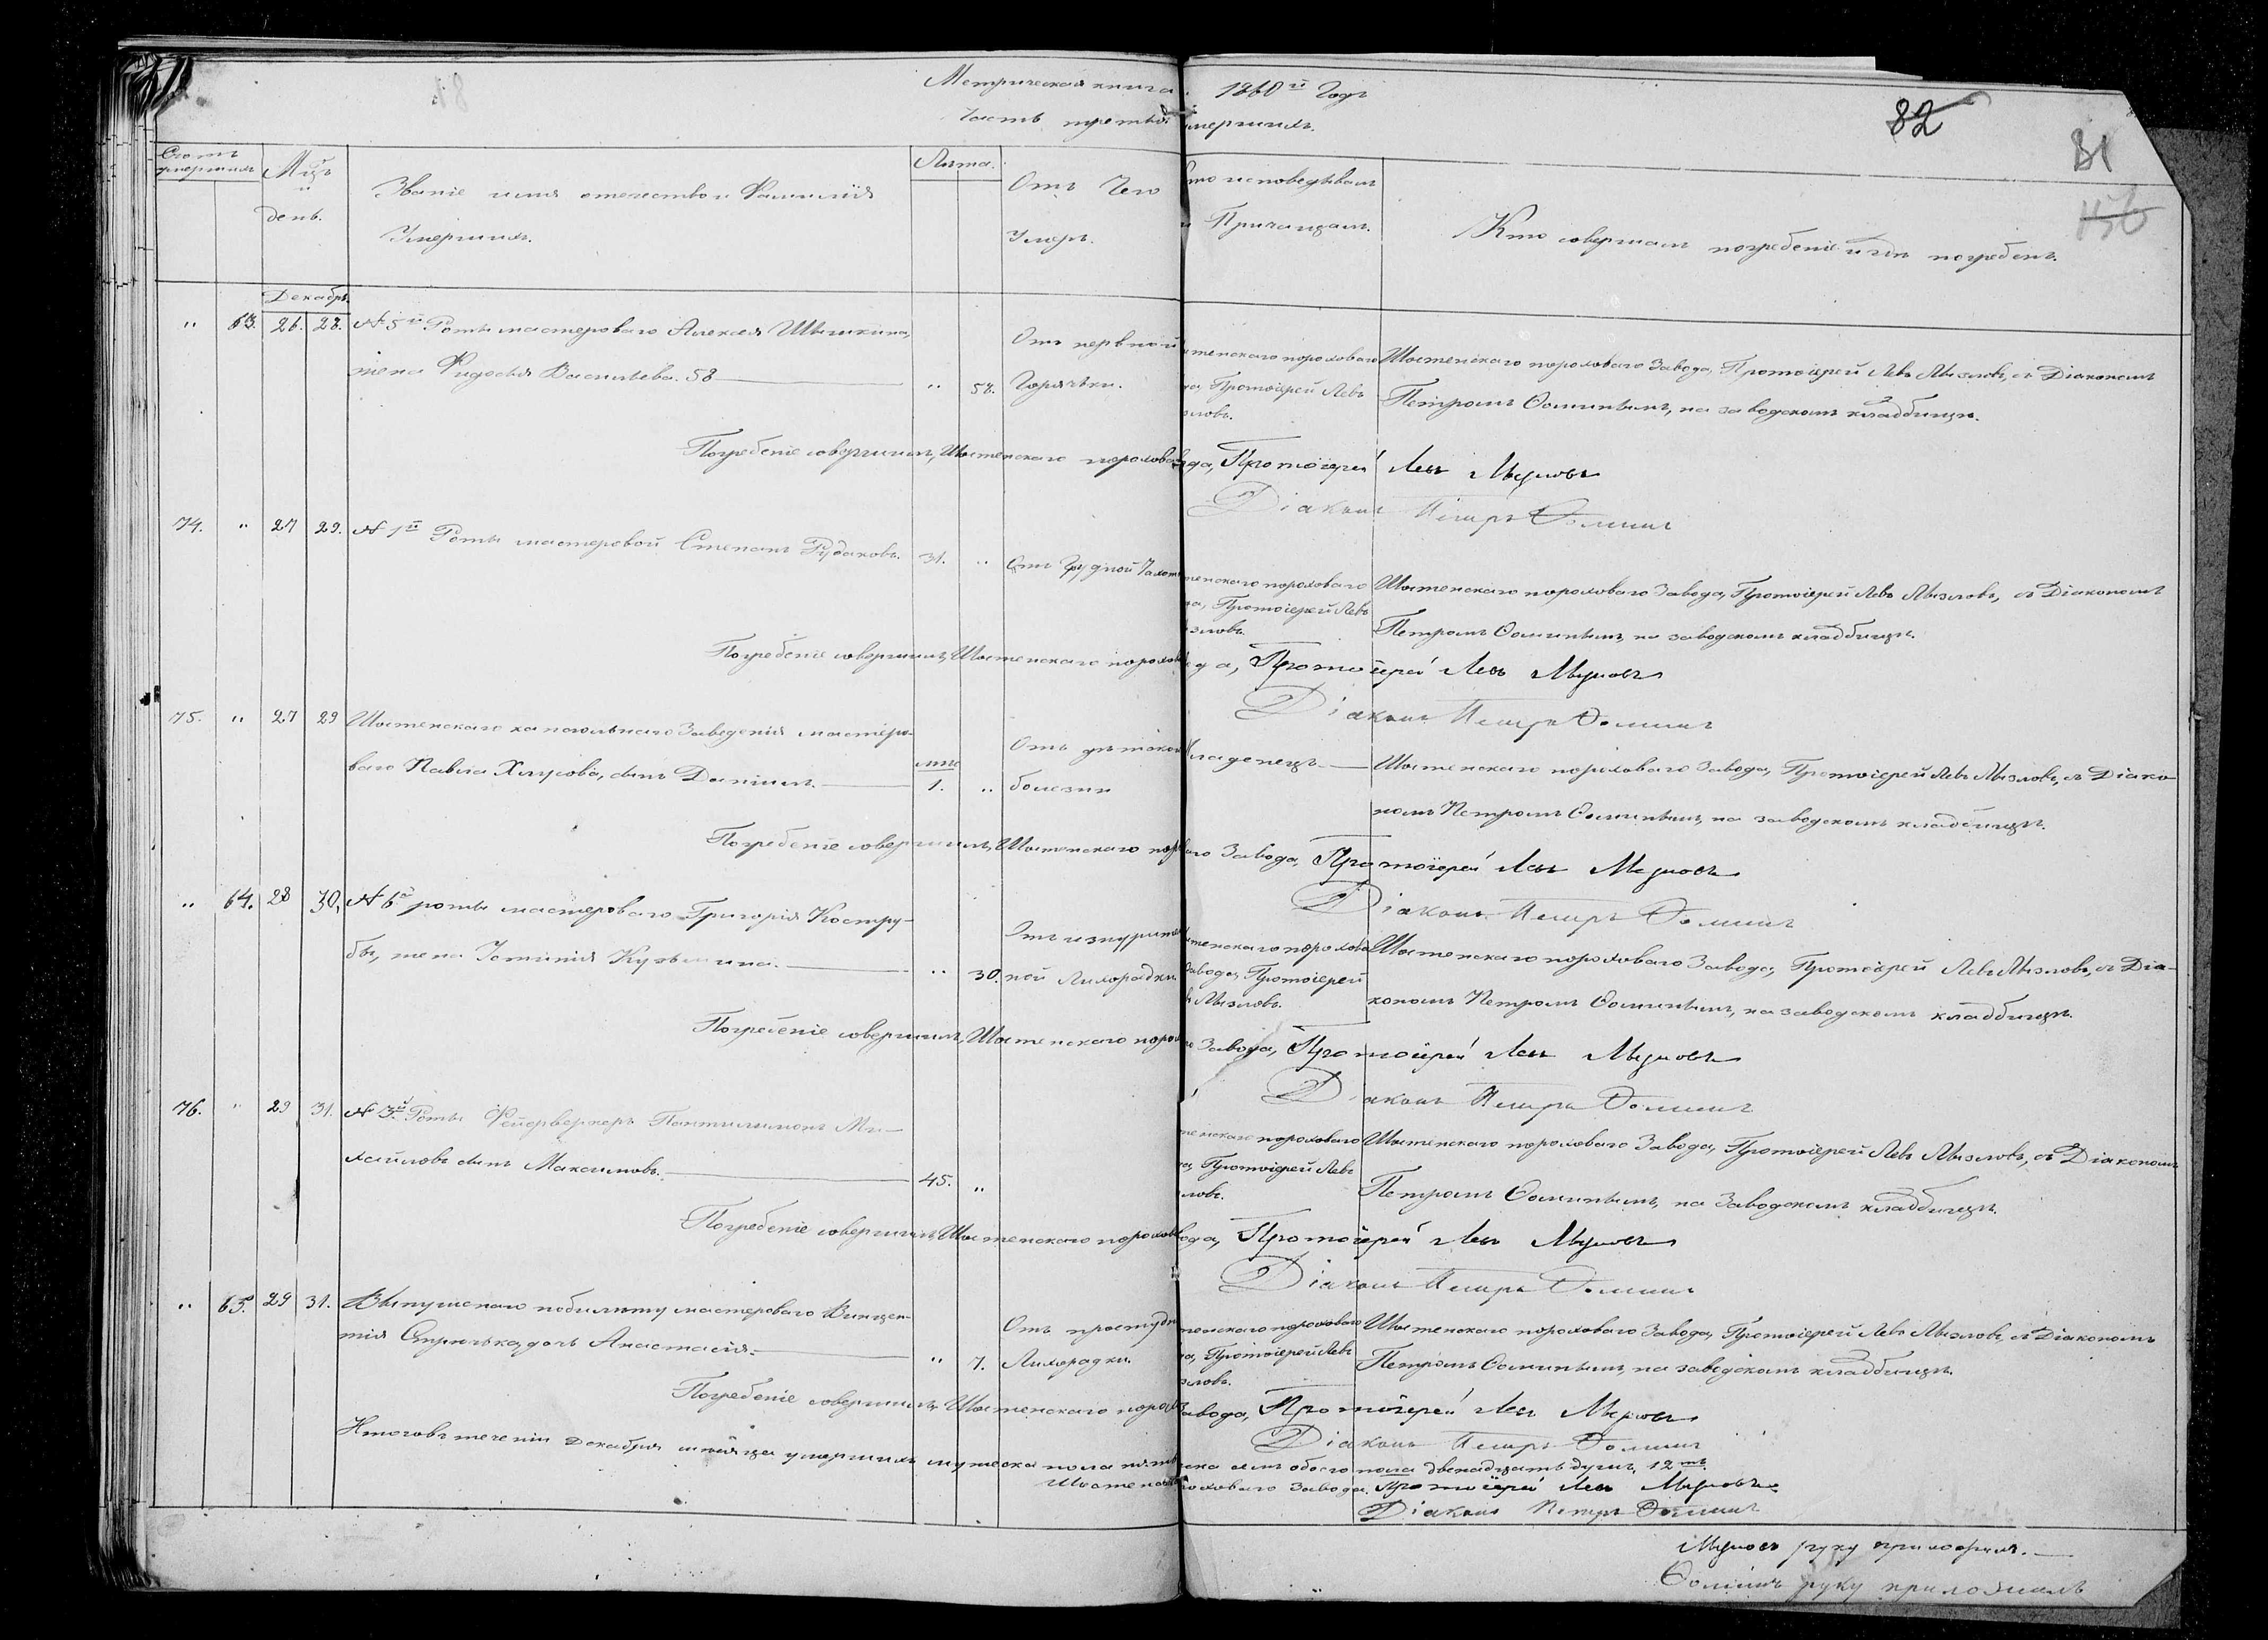 Метрическая книга 1860й Годъ
Часть третья умершихъ.
82
81
156
Счетъ умершихъ
Мцъ и день.
Званіе имя отечество и Фамилія Умершихъ.
Лѣта.
Отъ Чего Умеръ.
Кто исповедывалъ и Причащалъ.
Кто совершалъ погребеніе и гдѣ погребенъ.
Декабрь.
" 63. 26. 28. № 5й Роты мастероваго Алексея Шишкина,
жена Фидосья Васильева. 58 " 58.
Отъ нервной
Горячьки.
стенскаго пороховаго
Протоіерей Левъ
Шостенскаго пороховаго Завода, Протоіерей Левъ Мызловъ, съ Діакономъ
Петромъ Ѳоминымъ, на заводскомъ кладбищѣ.
Погребеніе совершилъ, Шостенскаго порохова да, Протоіерей Левъ Мызловъ
Діаконъ Петръ Ѳоминъ
74. " 27 29. № 1й Роты мастеровой Степанъ Рудаковъ. 31. " Отъ Грудной
тенскаго пороховаго
Протоіерей Левъ
Шостенскаго пороховаго Завода, Протоіерей Левъ Мызловъ, съ Діакономъ
Петромъ Ѳоминымъ, на заводскомъ кладбищѣ.
Погребеніе совершилъ, Шостенскаго порохов да, Протоіерей Левъ Мызловъ
Діаконъ Петръ Ѳоминъ
75. " 27 29 Шостенскаго капсюльнаго Заведенія мастеро-
ваго Павла сынъ Даніилъ. 1. "
Отъ детской
болезни
Младенецъ
Шостенскаго пороховаго Завода, Протоіерей Левъ Мызловъ, съ Діако-
номъ Петромъ Ѳоминымъ, на заводскомъ кладбищѣ.
Погребеніе совершилъ, Шостенскаго пор ваго Завода, Протоіерей Левъ Мызловъ
Діаконъ Петръ Ѳоминъ
" 64. 28 30, № 6й роты мастероваго Григорія Костру-
бы, жена Іотинія Кузьмина. " 30.
Отъ изнурител
ной Лихорадки.
стенскаго порохова
Завода, Протоіерей
ъ Мызловъ.
Шостенскаго пороховаго Завода, Протоіерей Левъ Мызловъ, съ Діа-
кономъ Петромъ Ѳоминымъ, на заводскомъ кладбищѣ.
Погребеніе совершилъ, Шостенскаго порох го Завода, Протоіерей Левъ Мызловъ
Діаконъ Петръ Ѳоминъ
76. " 29 31. № 3й Роты Фейерверкеръ Пантилимонъ Ми-
хайловъ сынъ Максимовъ. 45. "
тенскаго пороховаго
Протоіерей Левъ
Шостенскаго пороховаго Завода, Протоіерей Левъ Мызловъ, съ Діакономъ
Петромъ Ѳоминымъ, на Заводскомъ кладбищѣ.
Погребеніе совершилъ, Шостенскаго порохов ода, Протоіерей Левъ Мызловъ
Діаконъ Петръ Ѳоминъ
" 65. 29 31. Выпушенаго побилѣту мастероваго Винцен-
тія дочь Анастасія. " 7.
Отъ простудн
Лихорадки.
тенскаго пороховаго
Протоіерей Левъ
Шостенскаго пороховаго Завода, Протоіерей Левъ Мызловъ, съ Діакономъ
Петромъ Ѳоминымъ, на заводскомъ кладбищѣ.
Погребеніе совершилъ, Шостенскаго порох Завода, Протоіерей Левъ Мызловъ
Діаконъ Петръ Ѳоминъ
Итого въ теченіи Декабря месяца умершихъ мужеска пола обоего пола двенадцать душъ, 12ть.
Шостенск роховаго Завода. Протоіерей Левъ Мызловъ
Діаконъ Петръ Ѳоминъ
Мызловъ руку приложилъ.
Ѳоминъ руку приложилъ